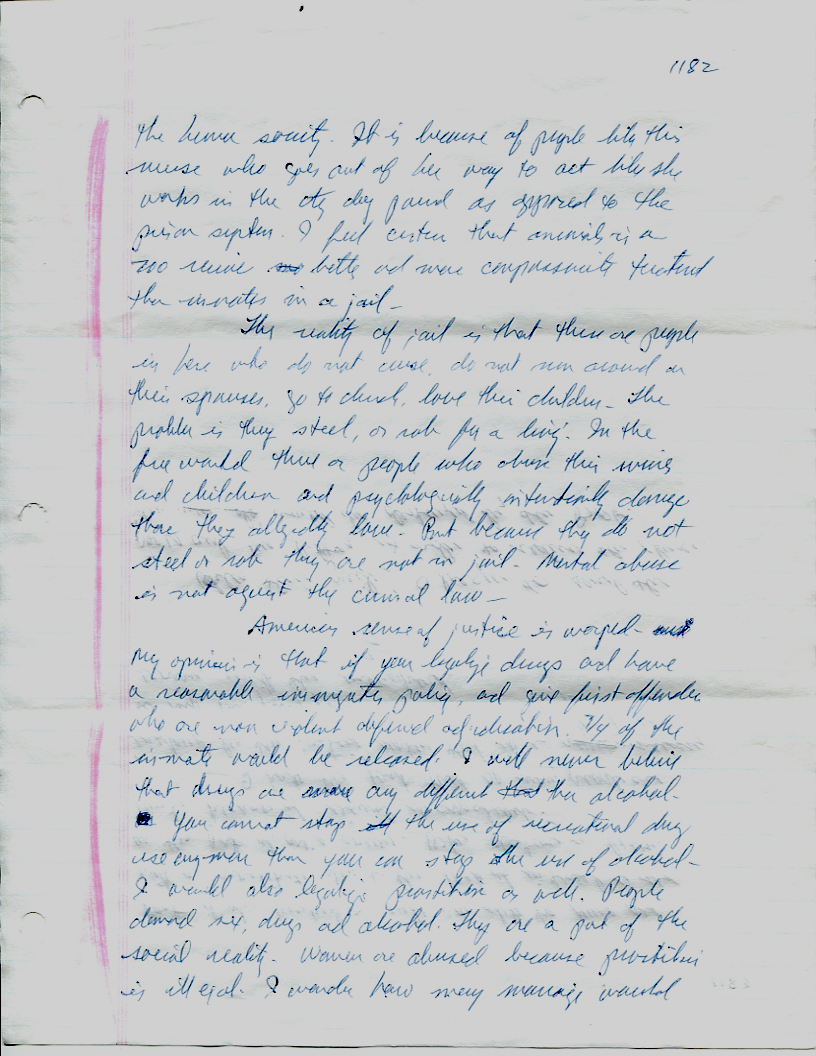 1182
the humane society. It is because of people like this
nurse who goes out of her way to act like she
works in the city dog pound as opposed to the
prison system. I feel certain that animals in a
zoo receive better and more compassionate treatment
than inmates in a jail-
The reality of jail is that there are people
in here who do not curse, do not run around on
their spouses, go to church, love their children- The
problem is they steel, or rob for a living. In the
free world there are people who abuse their wives
and children and psychologically intentionally damage
those they allegedly love- But because they do not
steel or rob they are not in jail- Mental abuse
is not against the criminal law-
America's sense of justice is warped-
My opinion is that if you legalize drugs and have
a reasonable immigration policy, and give first offenders
who are non violent deferred adjudication. 3/4 of the
inmates would be released. I will never believe
that drugs are any different than alcohol-
You cannot stop the use of recreational drug
use anymore than you can stop the use of alcohol-
I would also legalize prostitution as well. People
demand sex, drugs and alcohol. They are a part of the
social reality- Women are abused because prostitution
is illegal. I wonder how many marriage would